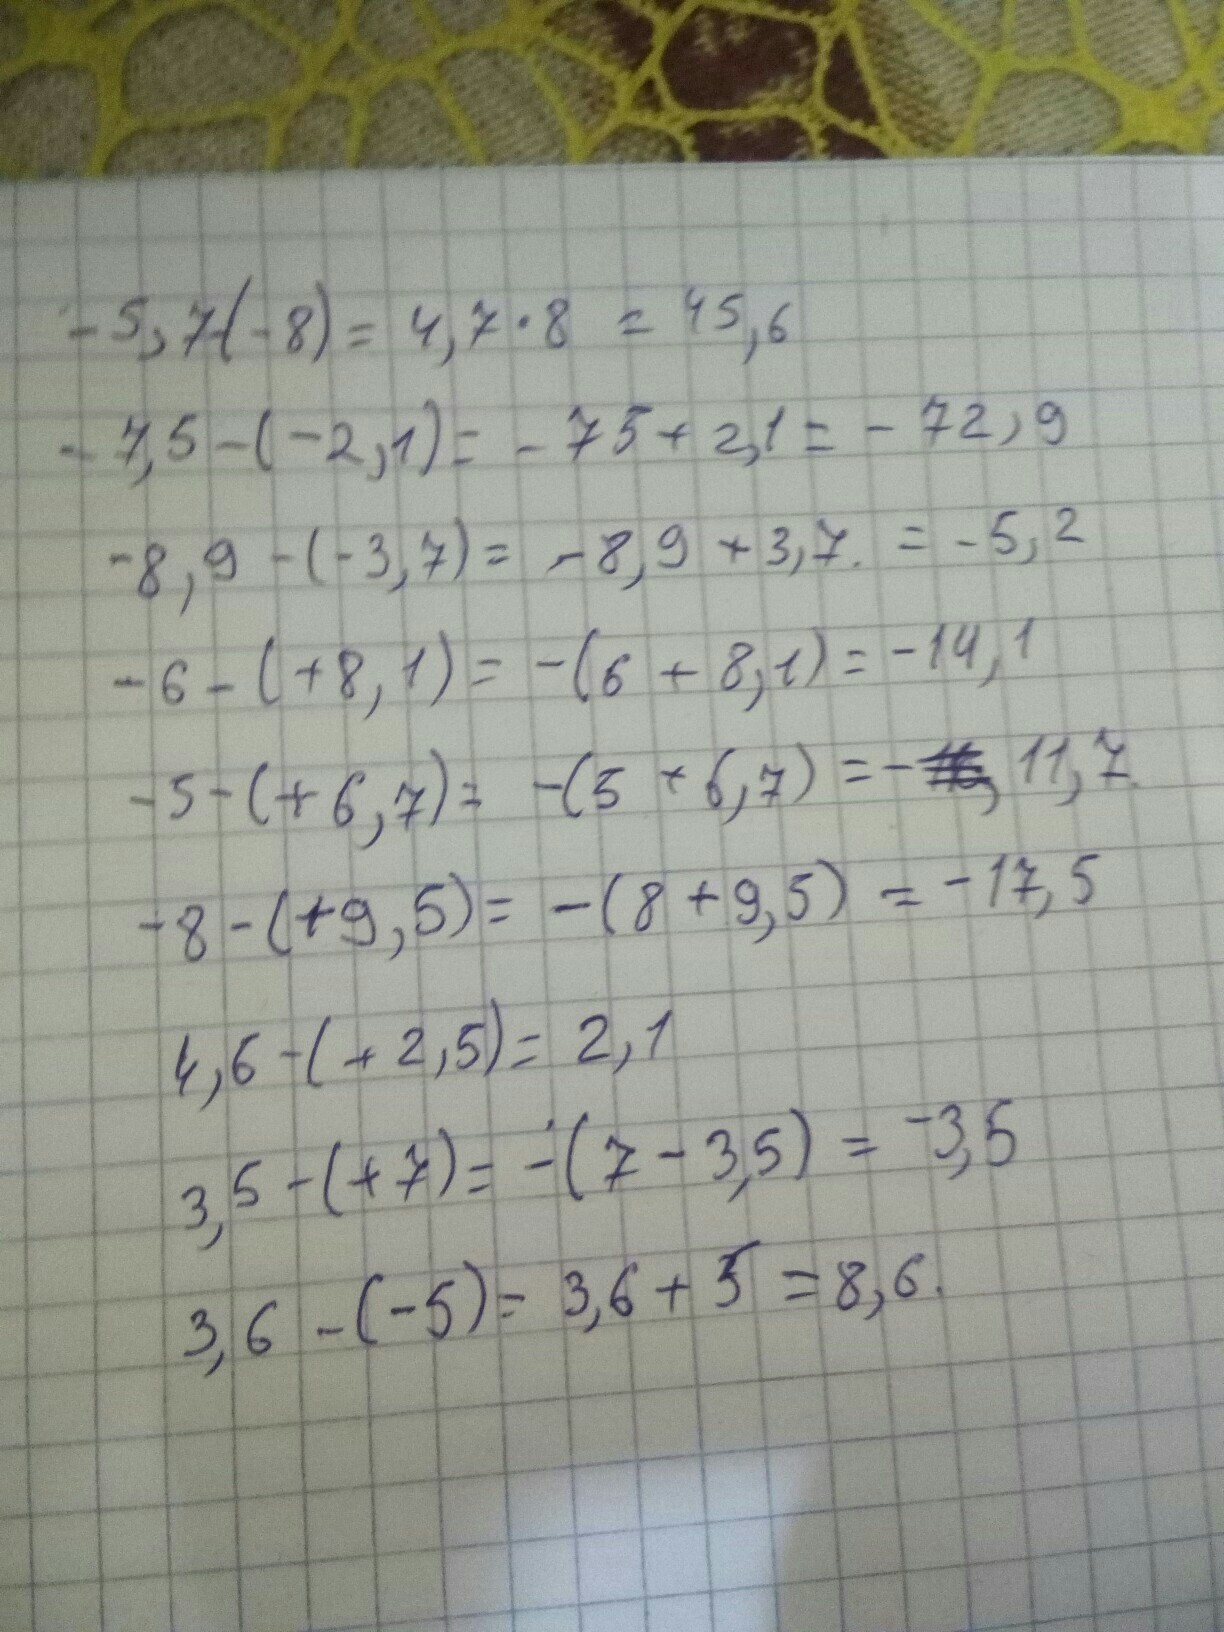 -5,7(-8) = 4,7·8 = 45,6
-7,5-(-2,1) = -75+2,1 = -72,9
-8,9-(-3,7) = -8,9+3,7. = -5,2
-6-(+8,1) = -(6+8,1) = -14,1
-5-(+6,7) = -(5+6,7) = - 11,7.
-8-(+9,5) = -(8+9,5) = -17,5
4,6-(+2,5) = 2,1
3,5-(+7) = -(7-3,5) = -3,5
3,6-(-5) = 3,6+5 = 8,6.